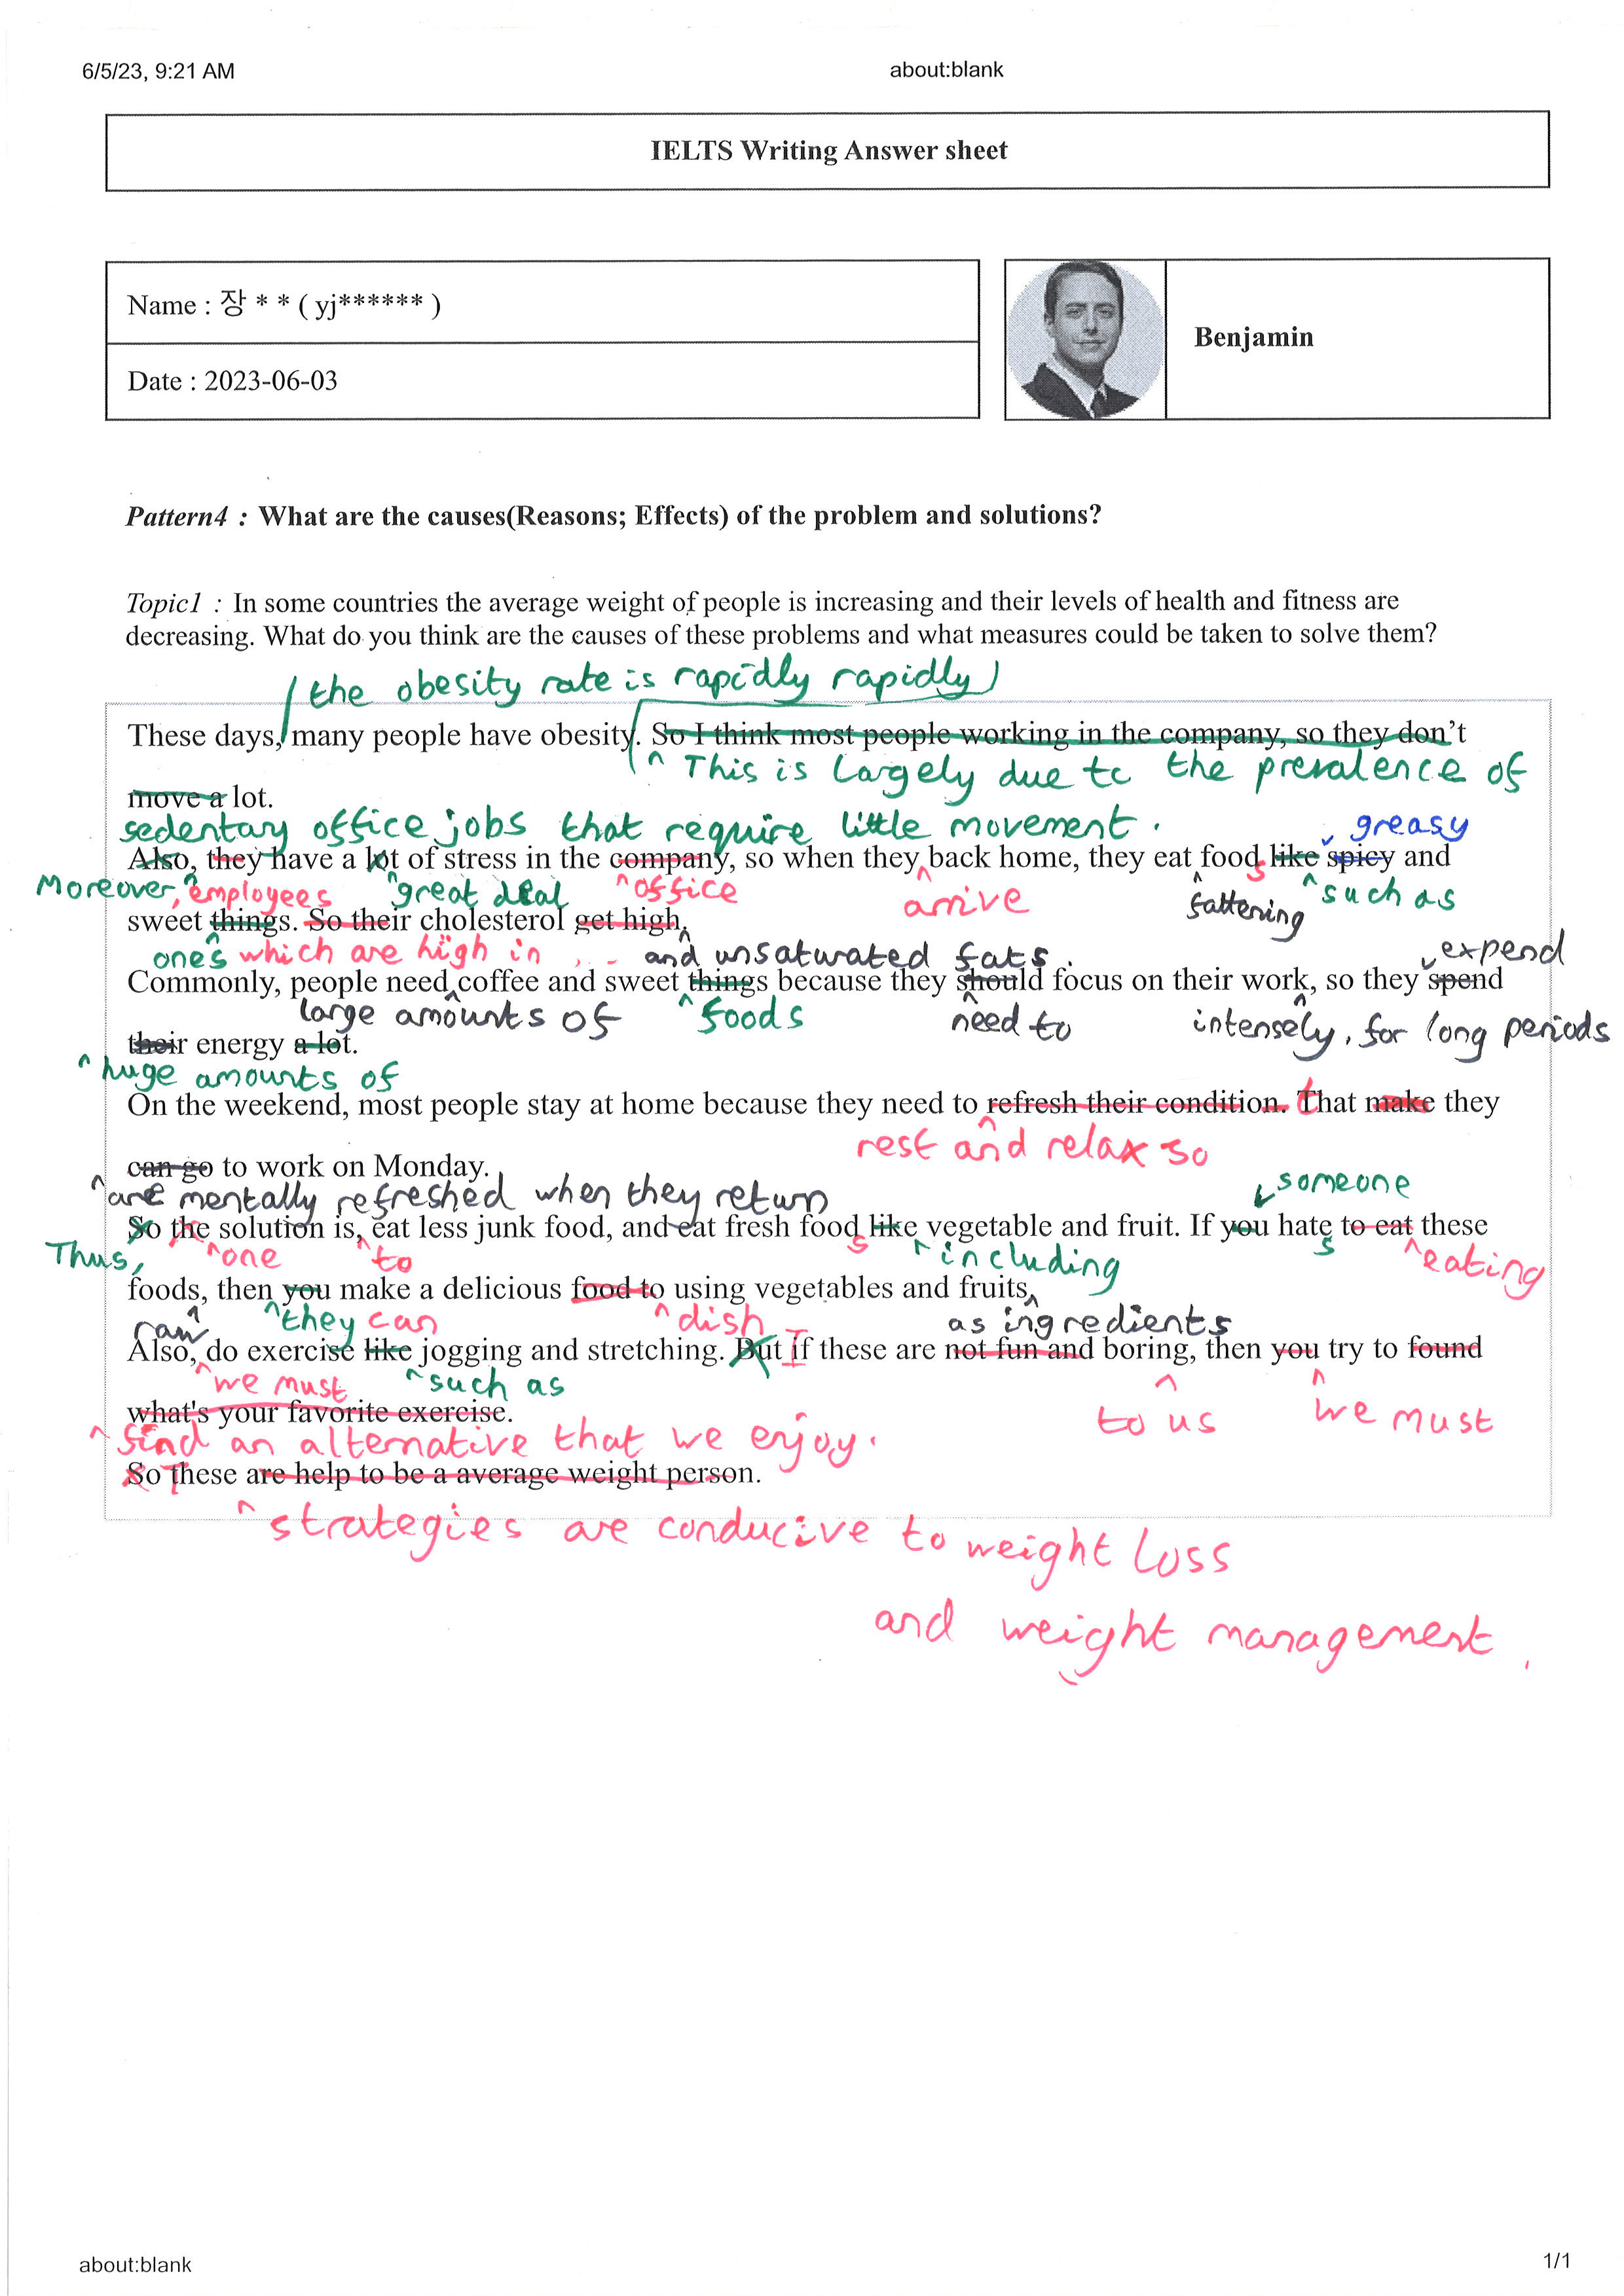 6/5/23, 9:21 AM about:blank
IELTS Writing Answer sheet
Name : 장 * * ( yj****** )
Benjamin
Date : 2023-06-03
Pattern4 : What are the causes(Reasons; Effects) of the problem and solutions?
Topic1 : In some countries the average weight of people is increasing and their levels of health and fitness are
decreasing. What do you think are the causes of these problems and what measures could be taken to solve them?
(the obesity rate is rapidly rapidly)
These days, many people have obesity. So I think most people working in the company, so they don't
^ This is largely due to the prevalence of
move a lot.
sedentary office jobs that require little movement.
greasy
Also, they have a lot of stress in the company, so when they back home, they eat foods like spicy and
Moreover, employees ^great deal ^office arrive fattening ^such as
sweet things. So their cholesterol get high.
ones which are high in , - and unsaturated fats.
expend
Commonly, people need coffee and sweet things because they should focus on their work, so they spend
large amounts of ^foods need to intensely, for long periods
their energy a lot.
^huge amounts of
On the weekend, most people stay at home because they need to refresh their condition. That make they
rest and relax so
can go to work on Monday.
^are mentally refreshed when they return
someone
So the solution is, eat less junk food, and eat fresh foods like vegetable and fruit. If you hates to eat these
Thus, ^one ^to ^including ^eating
foods, then you make a delicious food to using vegetables and fruits,
raw ^they can ^dish as ingredients
Also, do exercise like jogging and stretching. But If these are not fun and boring, then you try to found
^we must ^such as ^ to us ^ we must
what's your favorite exercise.
^find an alternative that we enjoy.
So These are help to be a average weight person.
^ strategies are conducive to weight loss
and weight management.
about:blank 1/1